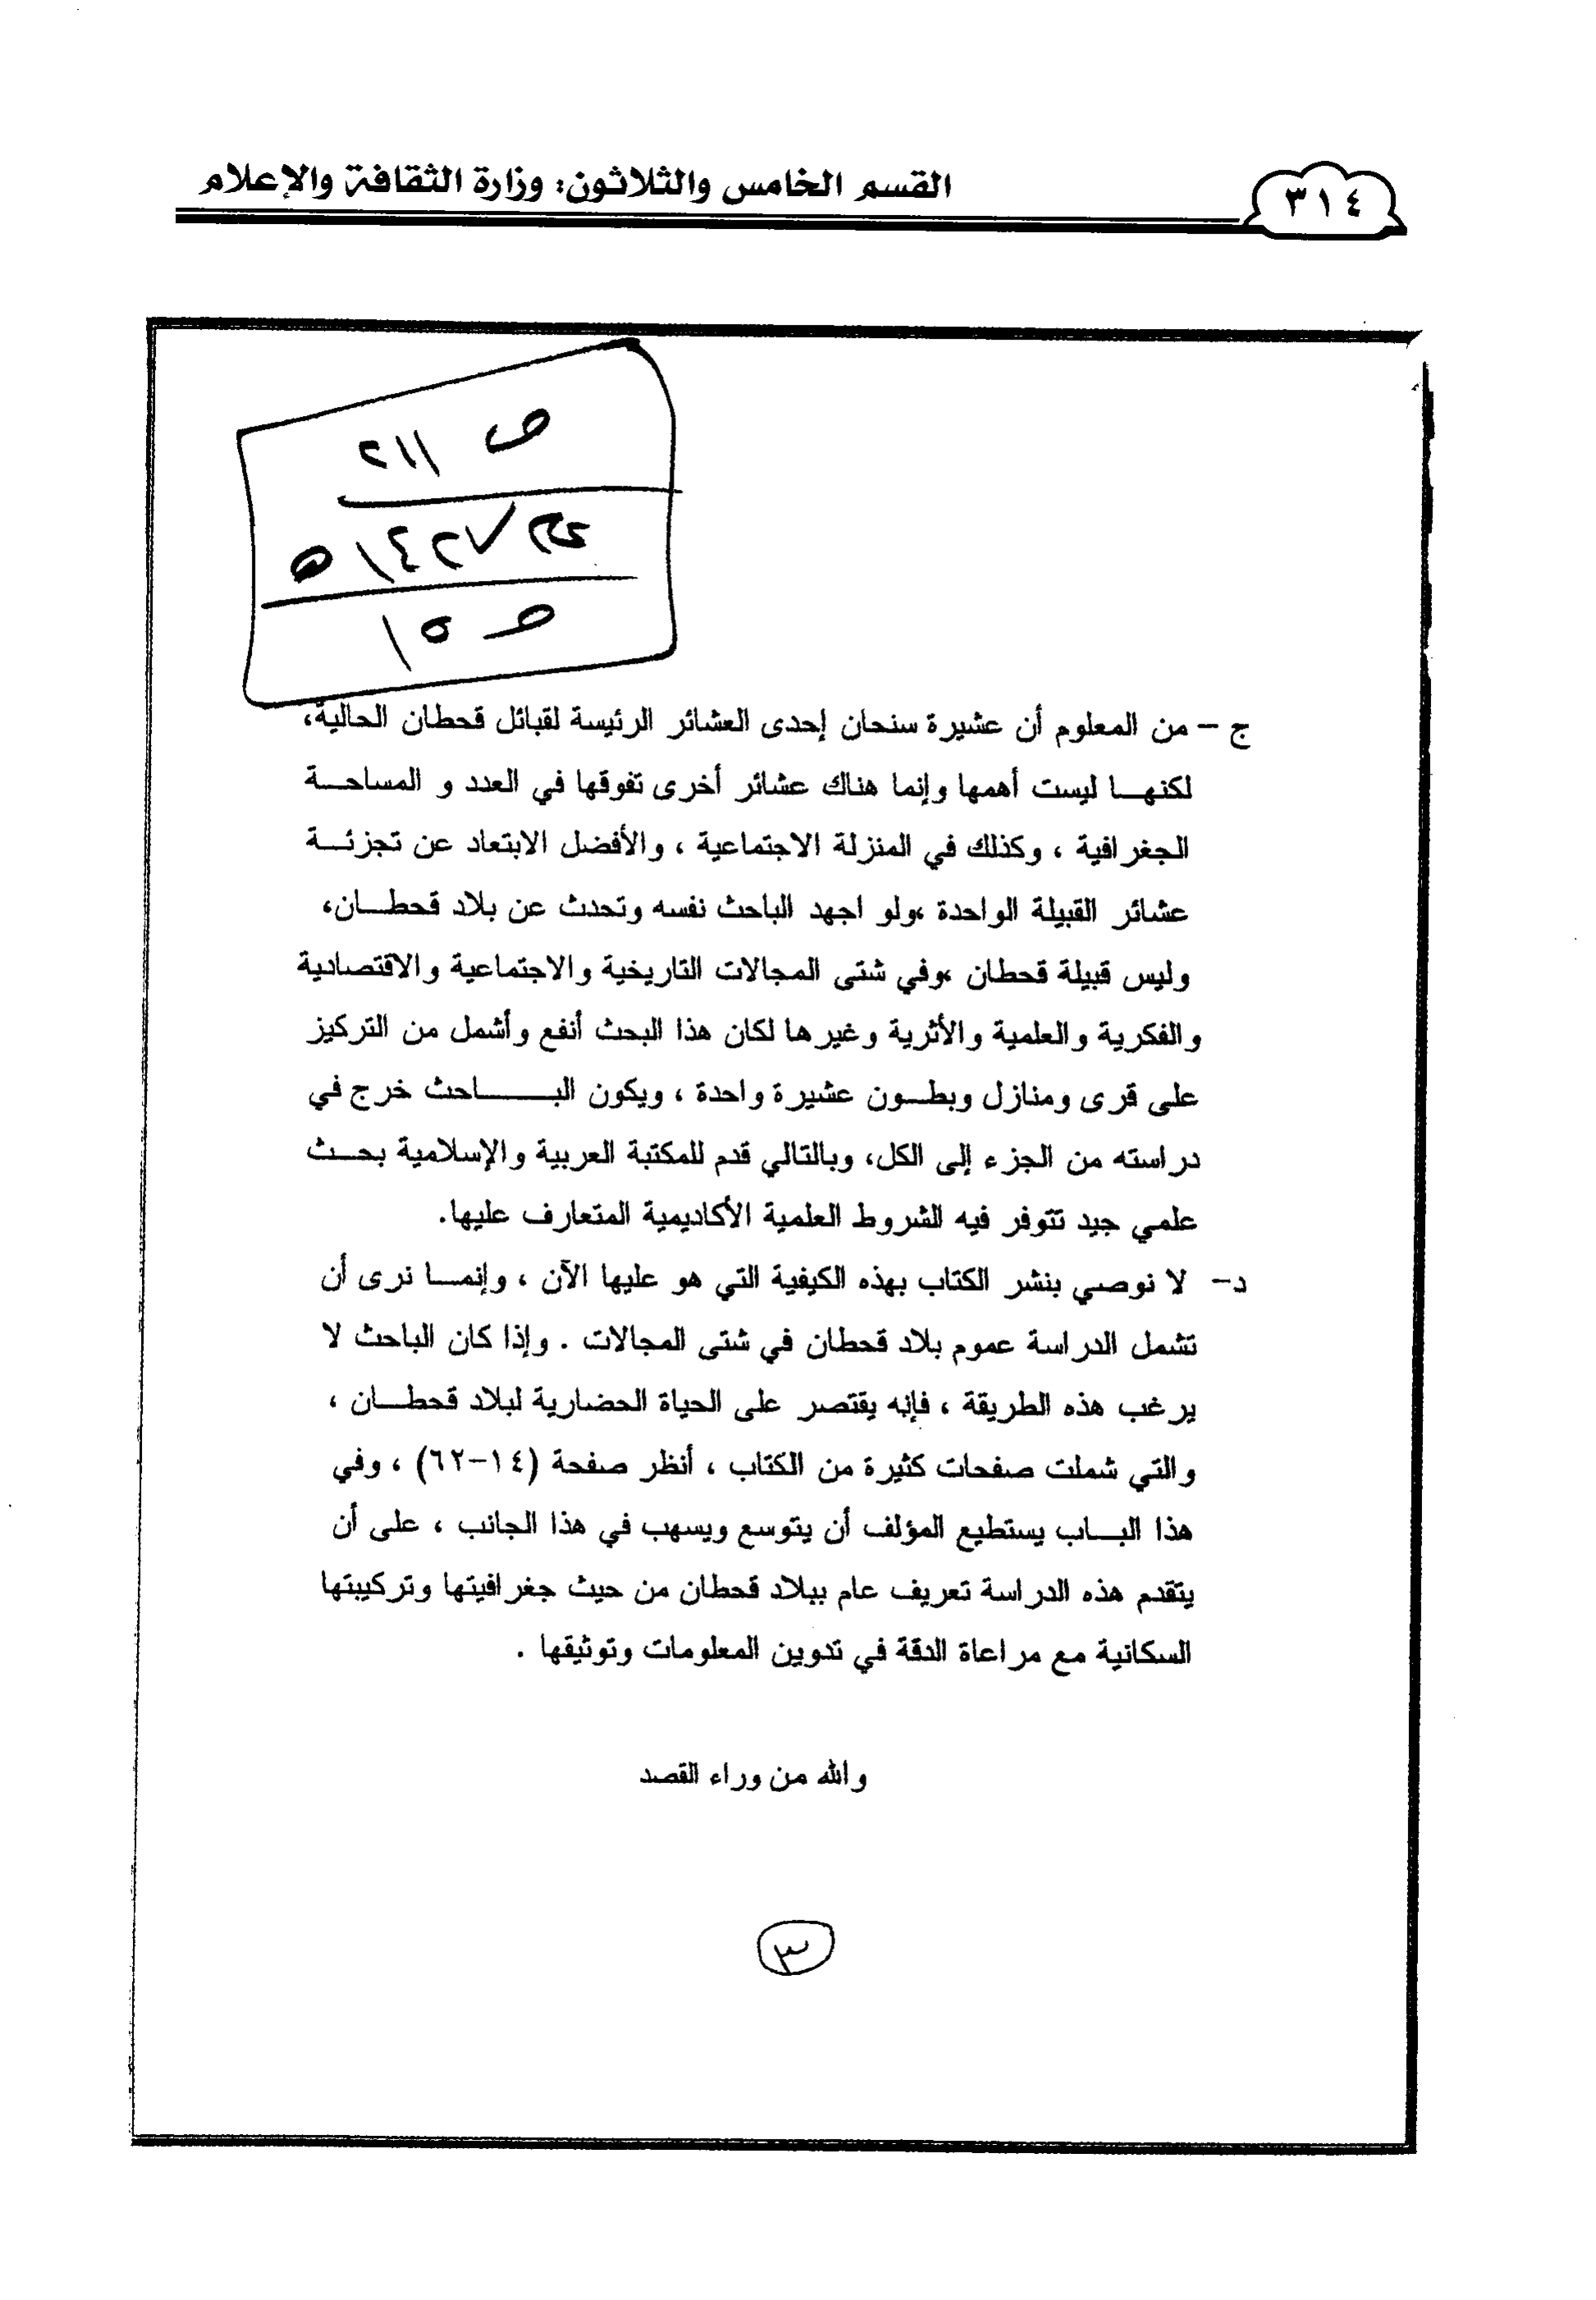 ٣١٤
القسم الخامس والثلاثون: وزارة الثقافة والإعلام
ص ٢١١
١٤٢ هـ
ص ١٥
ج - من المعلوم أن عشيرة سنحان إحدى العشائر الرئيسة لقبائل قحطان الحالية،
لكنهـــا ليست أهمها وإنما هناك عشائر أخرى تفوقها في العدد و المساحـــة
الجغرافية ، وكذلك في المنزلة الاجتماعية ، والأفضل الابتعاد عن تجزئـــة
عشائر القبيلة الواحدة ،ولو اجهد الباحث نفسه وتحدث عن بلاد قحطـــان،
وليس قبيلة قحطان ،وفي شتى المجالات التاريخية والاجتماعية والاقتصادية
والفكرية والعلمية والأثرية وغيرها لكان هذا البحث أنفع وأشمل من التركيز
على قرى ومنازل وبطـــون عشيرة واحدة ، ويكون البـــــاحث خرج في
دراسته من الجزء إلى الكل، وبالتالي قدم للمكتبة العربية والإسلامية بحـــث
علمي جيد تتوفر فيه الشروط العلمية الأكاديمية المتعارف عليها.
د- لا نوصي بنشر الكتاب بهذه الكيفية التي هو عليها الآن ، وإنمـــا نرى أن
تشمل الدراسة عموم بلاد قحطان في شتى المجالات . وإذا كان الباحث لا
يرغب هذه الطريقة ، فإنه يقتصر على الحياة الحضارية لبلاد قحطـــان ،
والتي شملت صفحات كثيرة من الكتاب ، أنظر صفحة (١٤-٦٢) ، وفي
هذا البـــاب يستطيع المؤلف أن يتوسع ويسهب في هذا الجانب ، على أن
يتقدم هذه الدراسة تعريف عام ببلاد قحطان من حيث جغرافيتها وتركيبتها
السكانية مع مراعاة الدقة في تدوين المعلومات وتوثيقها .
والله من وراء القصد
٣